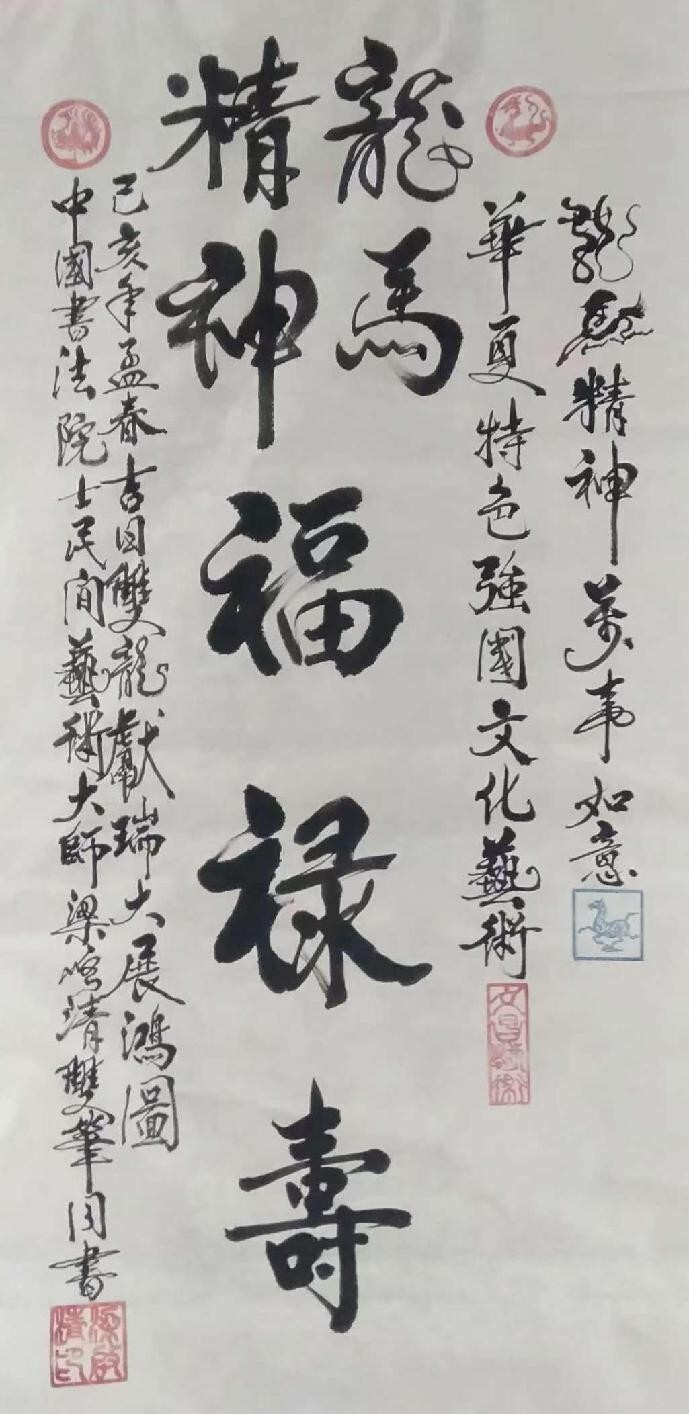 龍馬精神萬事如意
華夏特色強國文化藝術
龍馬
精神
福禄壽
己亥年孟春吉日雙龍獻瑞大展鴻圖
中國書法院士民间藝術大師梁啓清雙筆同書